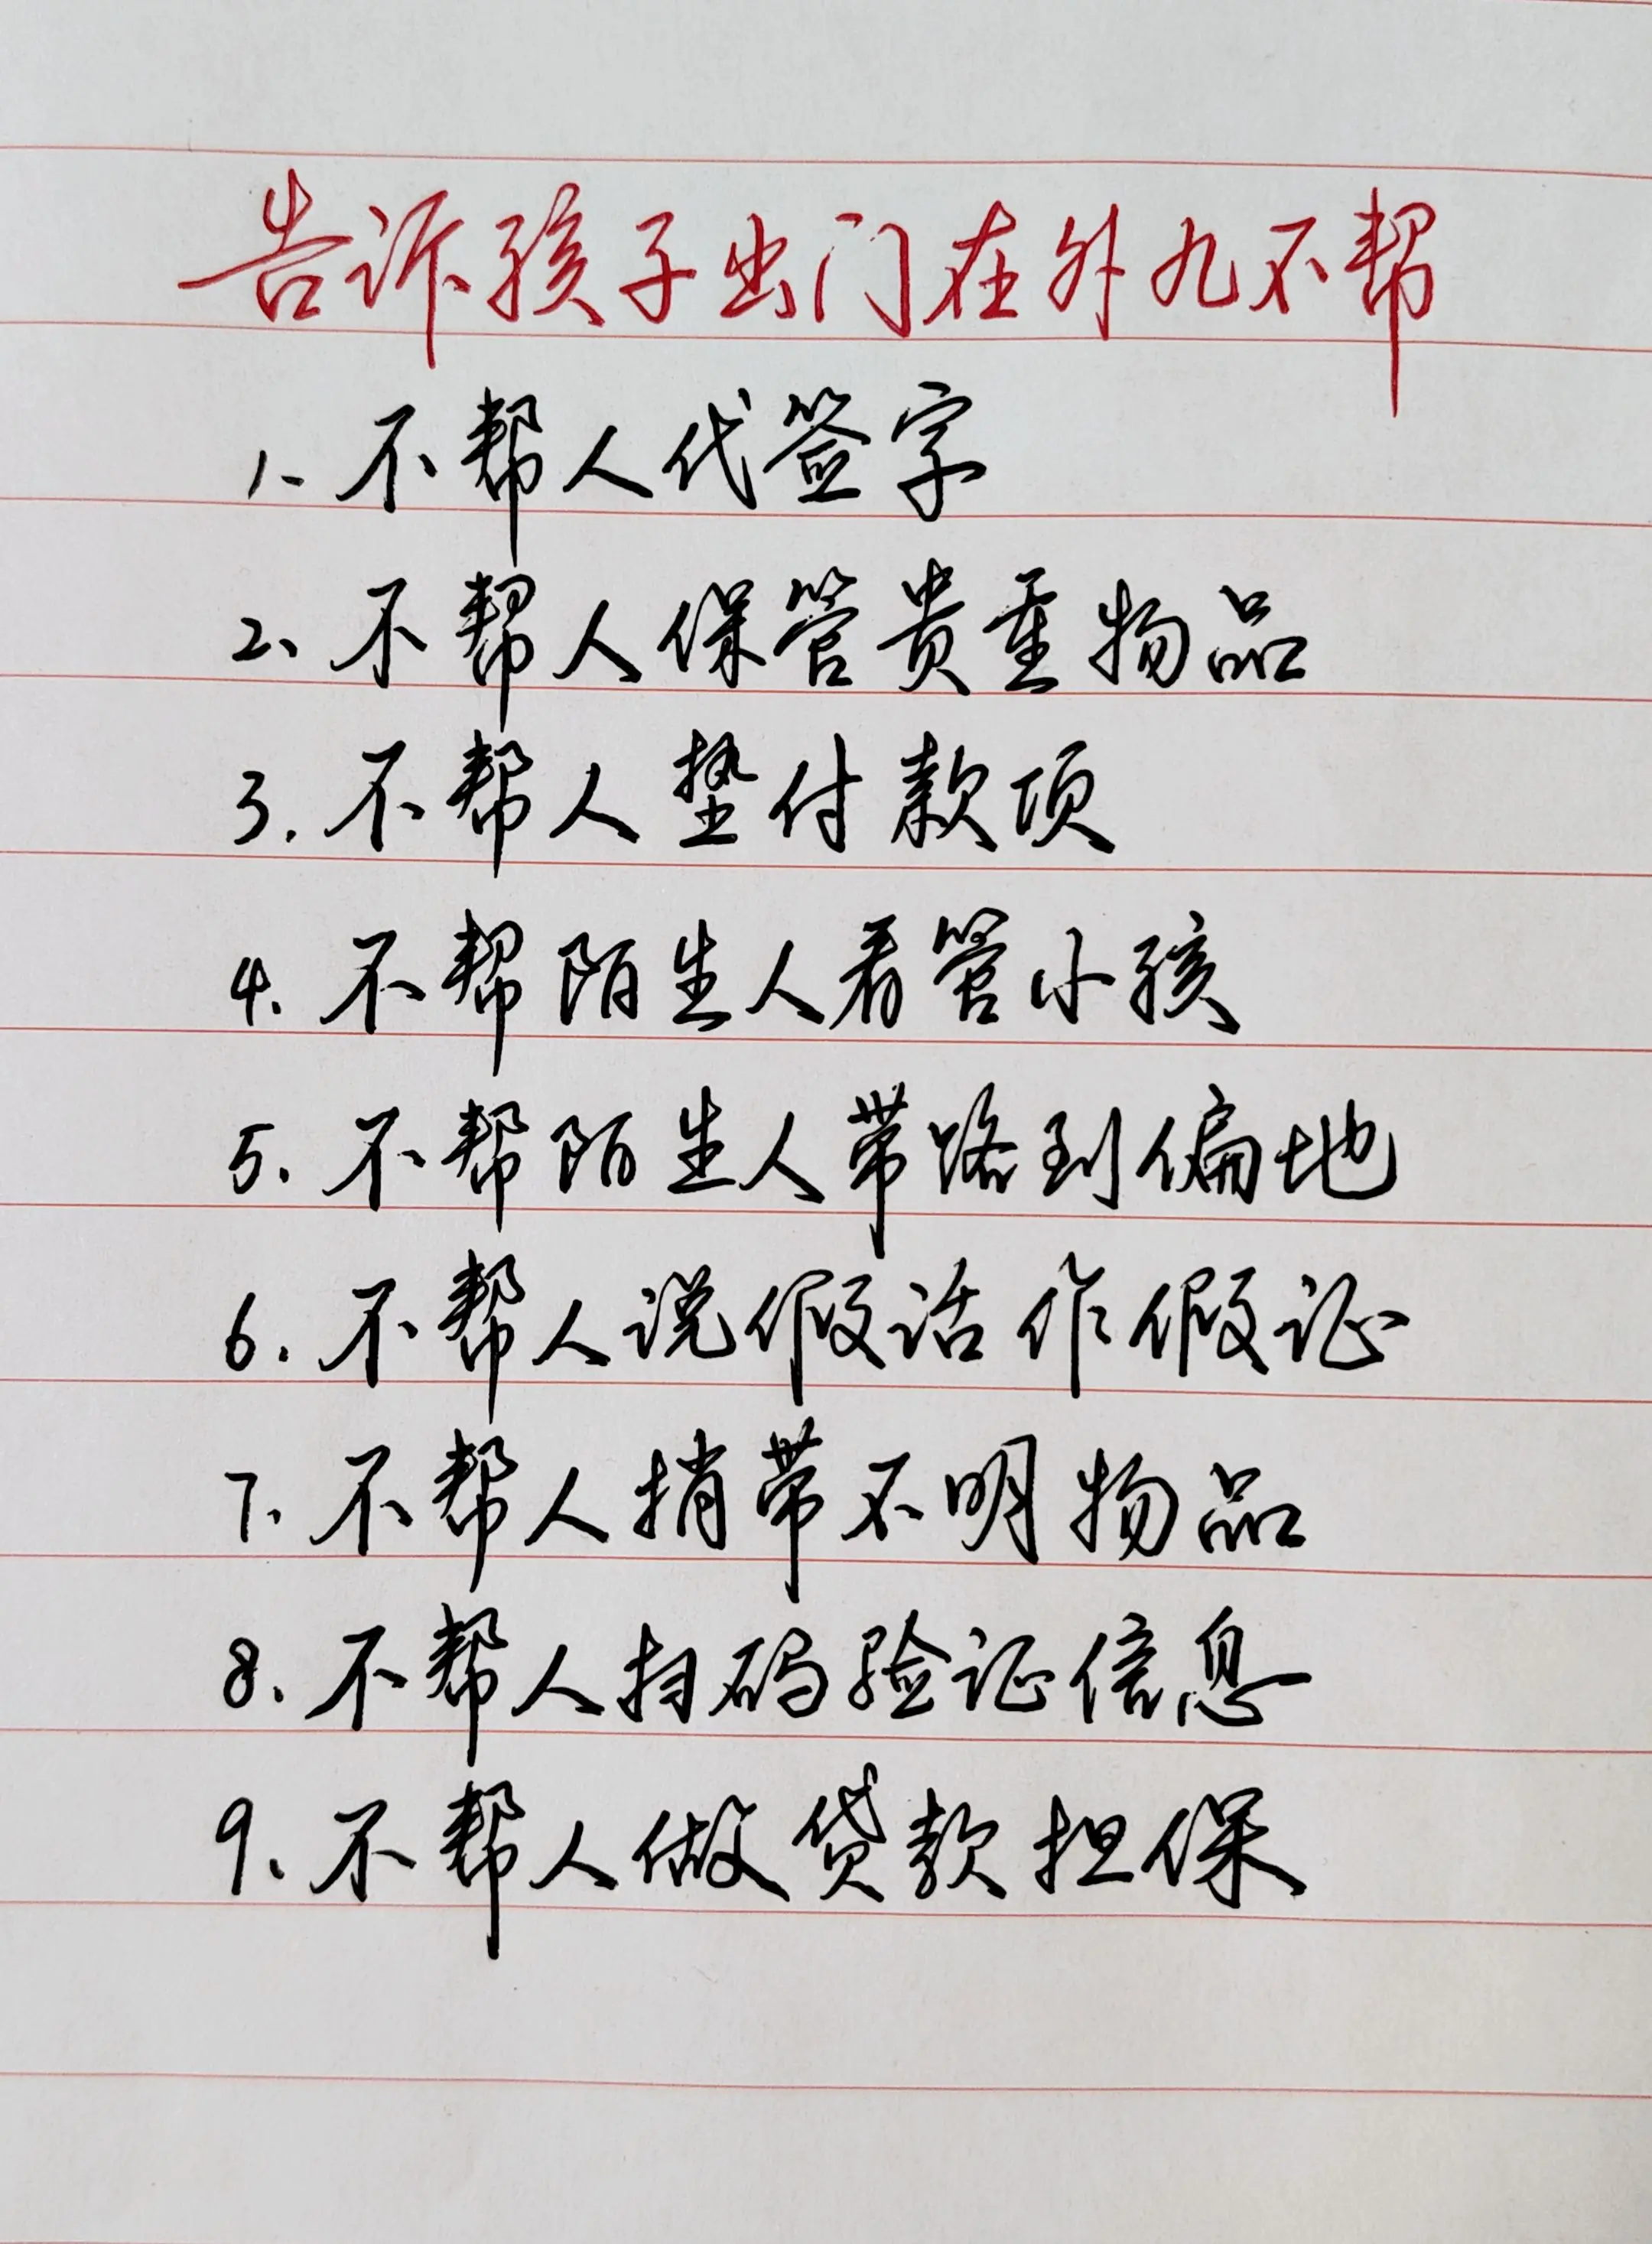 告诉孩子出门在外九不帮
1、不帮人代签字
2、不帮人保管贵重物品
3.不帮人垫付款项
4.不帮陌生人看管小孩
5.不帮陌生人带路到偏地
6.不帮人说假话作假证
7.不帮人捎带不明物品
8.不帮人扫码验证信息
9.不帮人做贷款担保